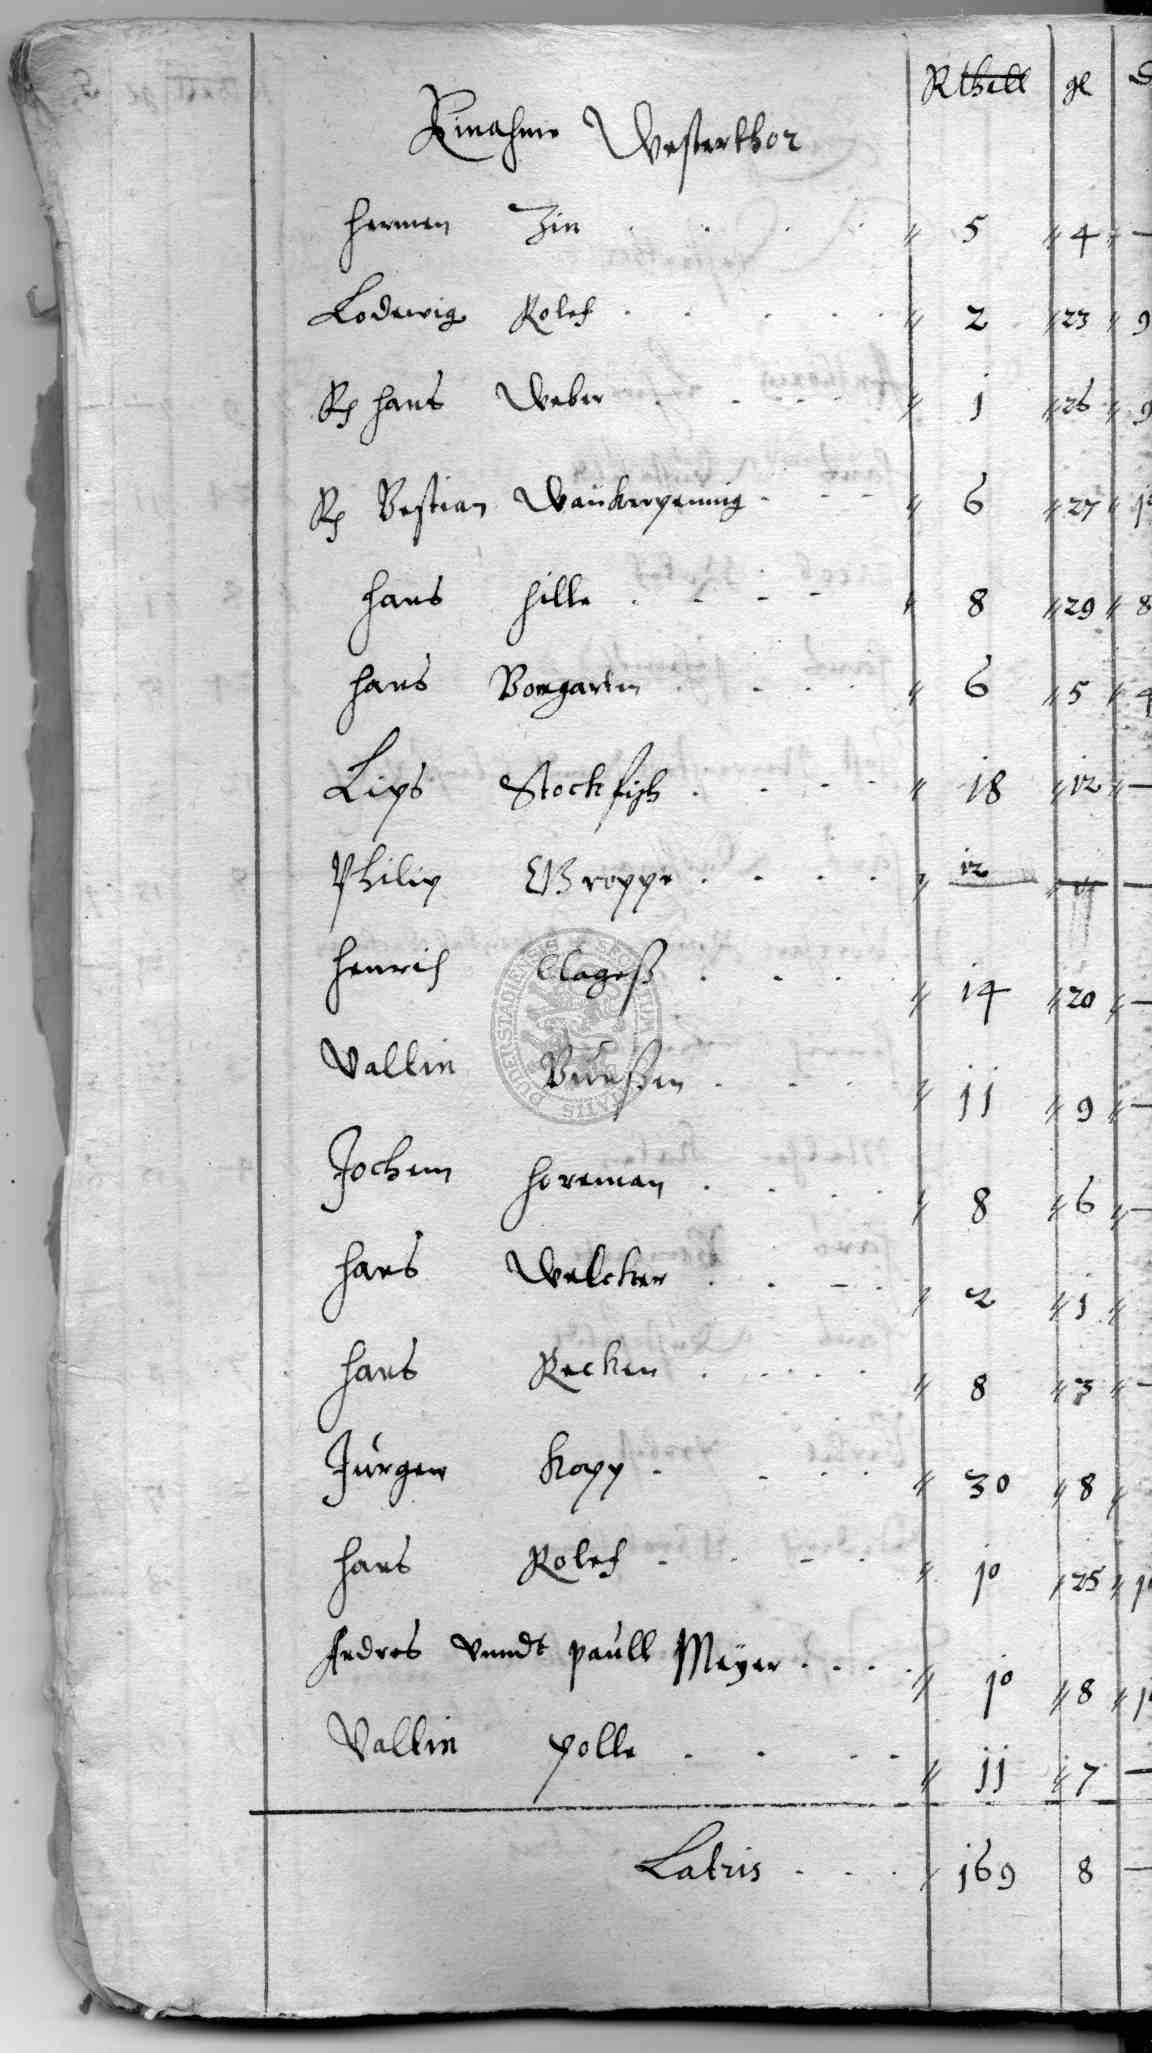 Rthall gl
Einahme Westerthor
Hermen Zin . . . . " 5 " 4 " —
Lodewig Rolef . . . . . " 2 " 23 " 9
Hans Weber . . . . " 1 " 26 " 9
Bestian Wankerpennig . - - " 6 " 27 "
Hans Hille . - - - " 8 " 29 " 8
Hans Bomgarten . . . . " 6 " 5 " 4
Lips Stockfisch . . . . " 18 " 12 " —
Philip Groppe . . . . " 12 " —
Henrich Clageß . . . . " 14 " 20 " —
Valtin . . . " 11 " 9 " —
Jochem Horeman . . . . " 8 " 6 " —
Hans Welcker . . - . " 2 " 1 "
Hans Recken . . . . " 8 " 3 " -
Jürgen Kopp . . . . " 30 " 8 "
Hans Rolef . . - . " 10 " 25 "
Andres vnndt paull Meyer . . . . " 10 " 8 "
Valtin polle . . . . " 11 " 7 —
Latris . . . 169 8 —